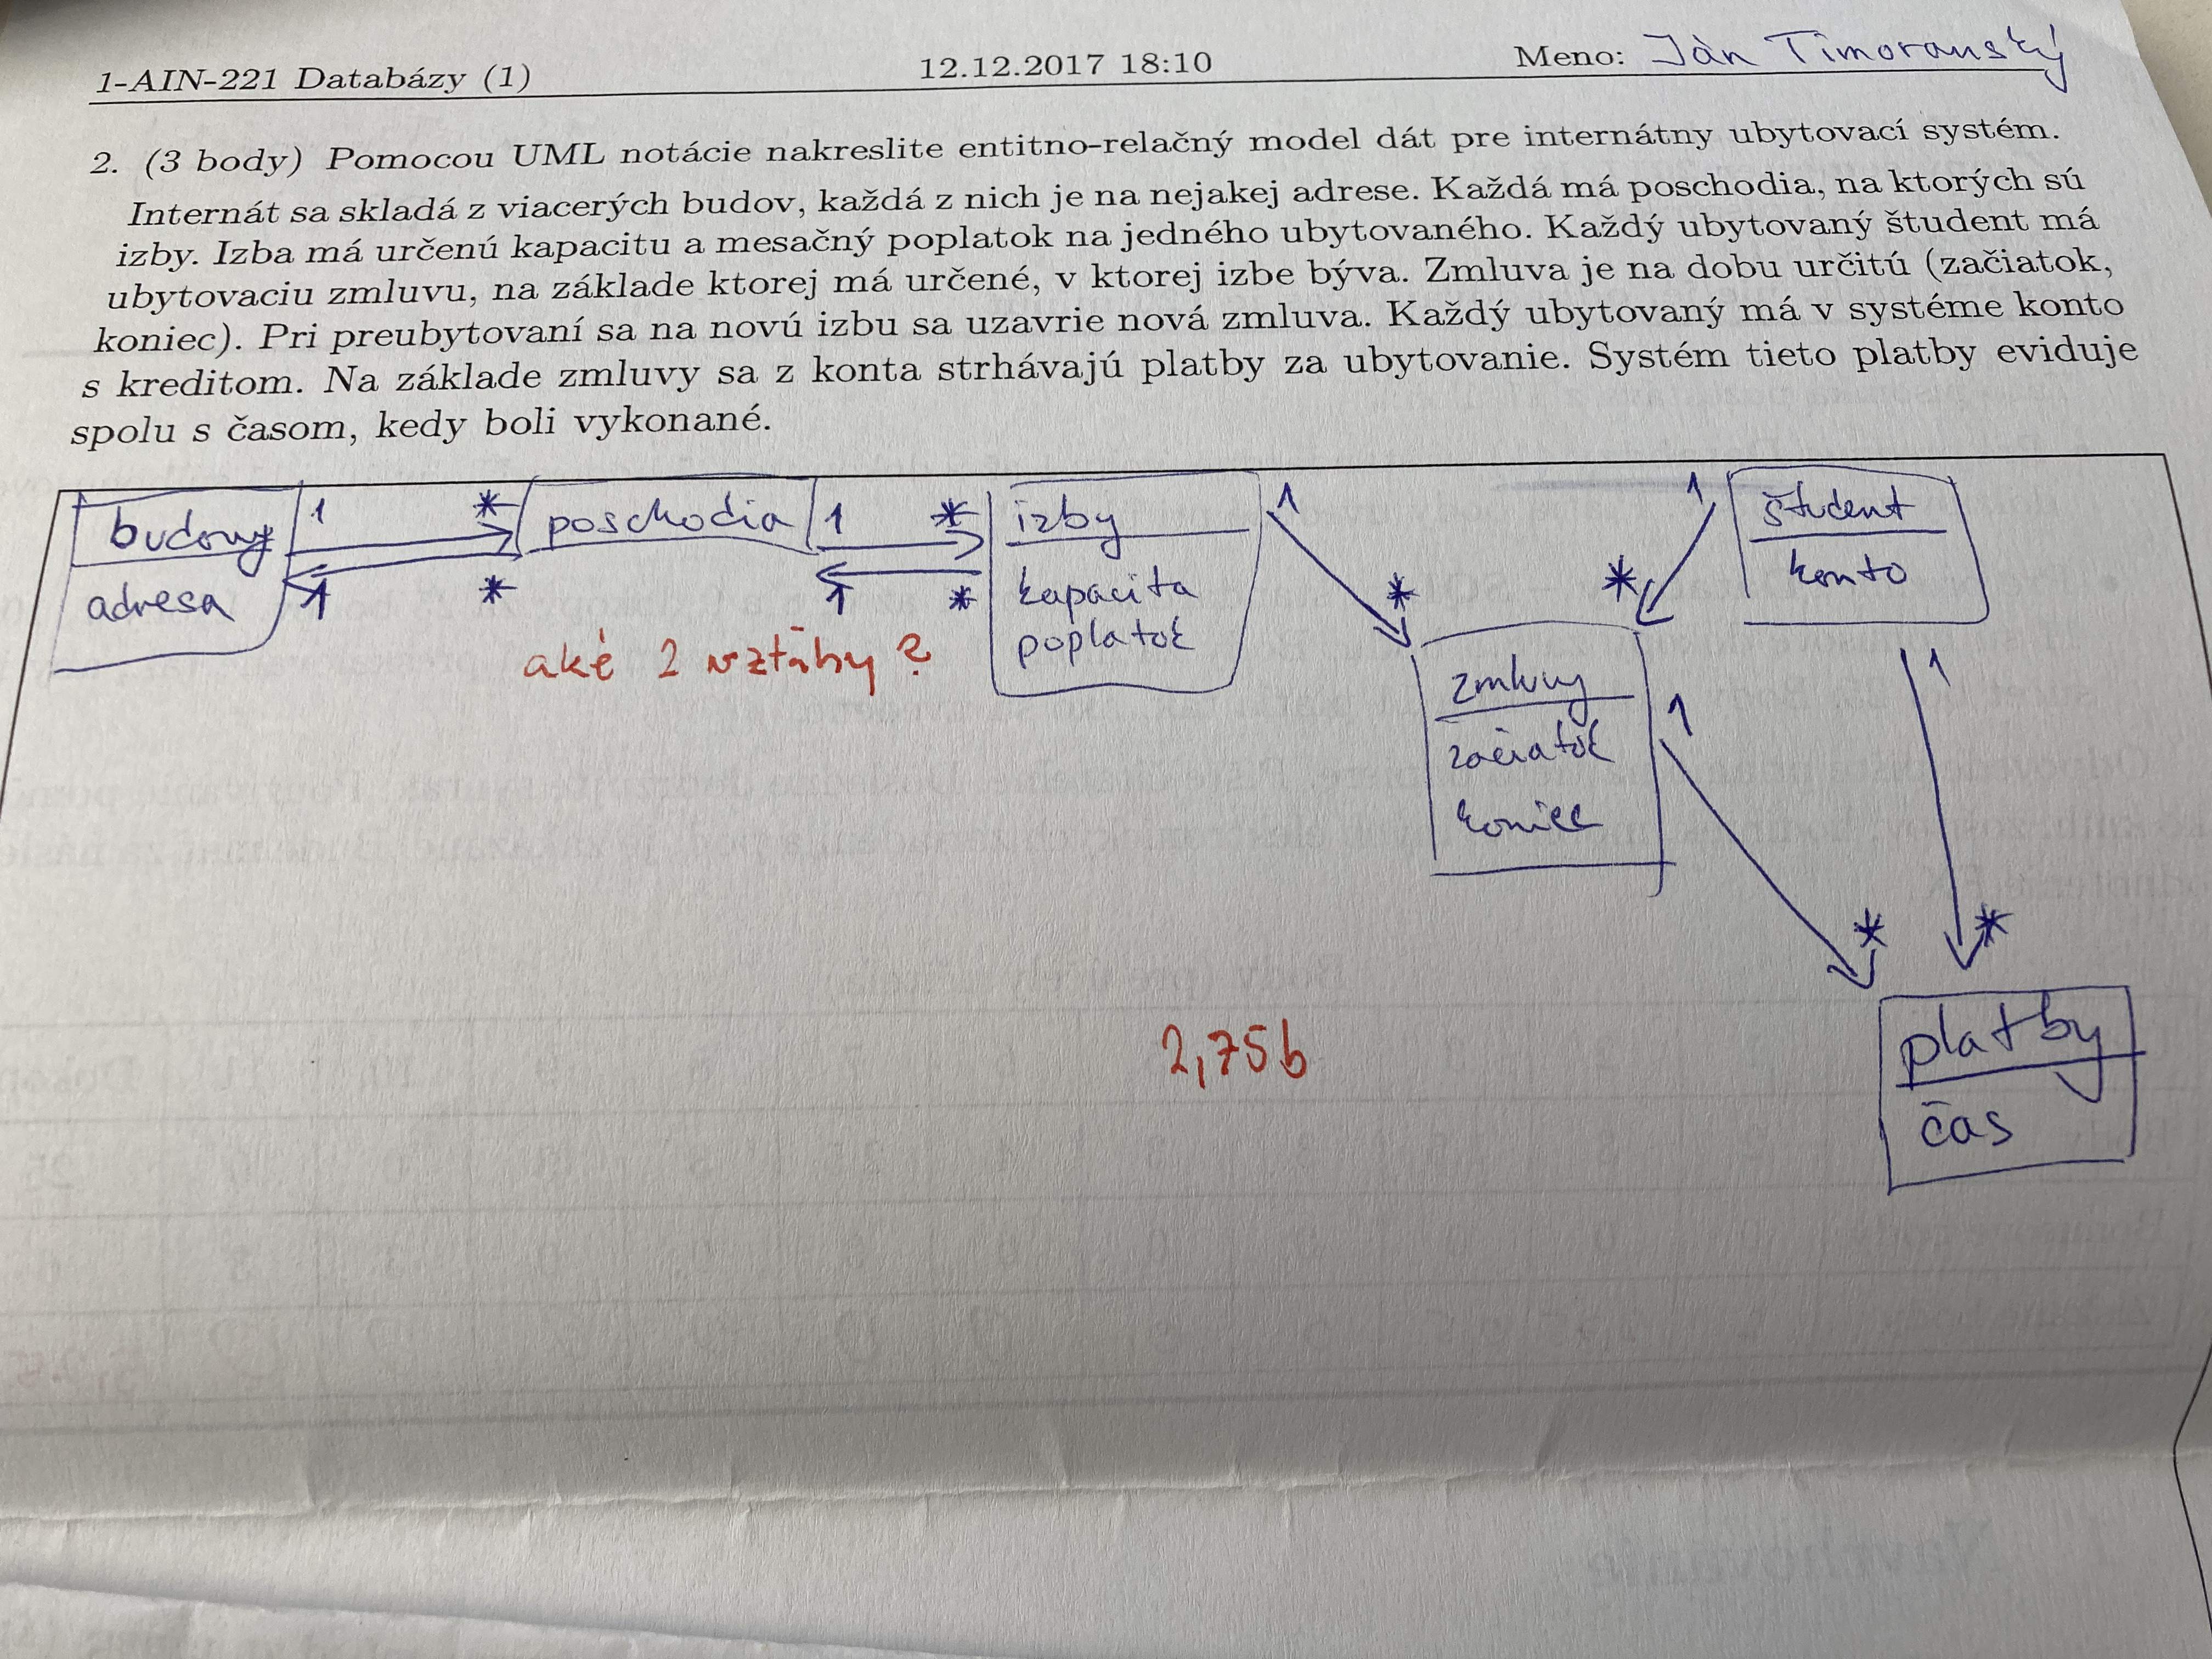 1-AIN-221 Databázy (1) 12.12.2017 18:10 Meno: Ján Timoranský
2. (3 body) Pomocou UML notácie nakreslite entitno-relačný model dát pre internátny ubytovací systém.
Internát sa skladá z viacerých budov, každá z nich je na nejakej adrese. Každá má poschodia, na ktorých sú
izby. Izba má určenú kapacitu a mesačný poplatok na jedného ubytovaného. Každý ubytovaný študent má
ubytovaciu zmluvu, na základe ktorej má určené, v ktorej izbe býva. Zmluva je na dobu určitú (začiatok,
koniec). Pri preubytovaní sa na novú izbu sa uzavrie nová zmluva. Každý ubytovaný má v systéme konto
s kreditom. Na základe zmluvy sa z konta strhávajú platby za ubytovanie. Systém tieto platby eviduje
spolu s časom, kedy boli vykonané.
budovy 1 * poschodia 1 * izby 1
adresa 1 * 1 * kapacita
poplatok
aké 2 vzťahy?
* zmluvy * 1
začiatok
koniec
študent
konto
1 * 1 *
platby
čas
2,75b